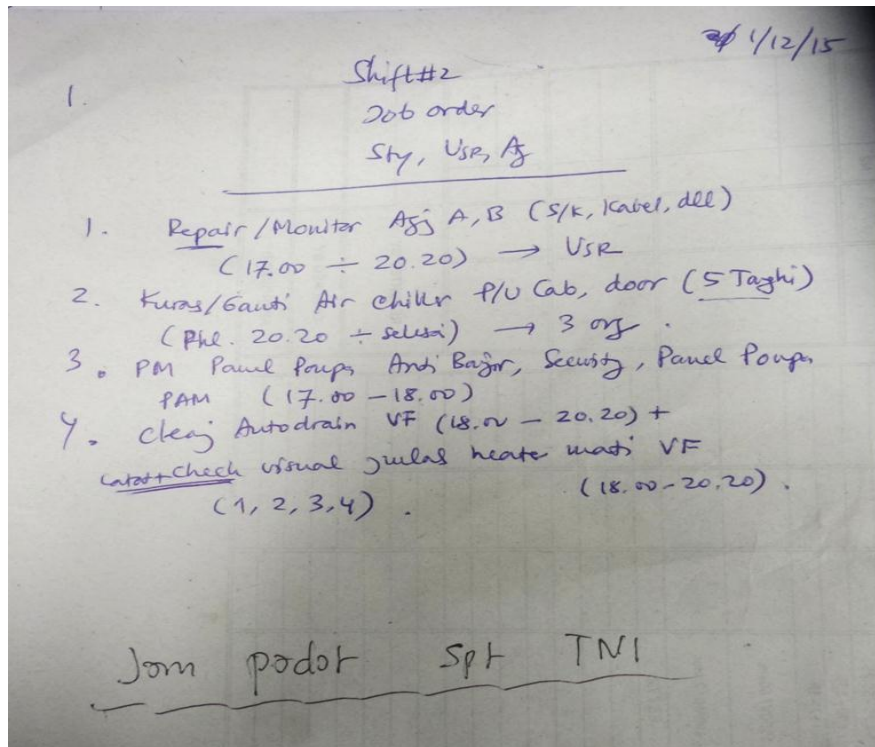 1/12/15
1. Shift #2
Job order
Sty, USR, Aj
1. Repair/Monitor Agj A, B (S/K, Kabel, dll)
(17.00 ÷ 20.20) → USR
2. Kuras/Ganti Air chiller P/U Cab, door (5 Tangki)
(Pkl. 20.20 ÷ selesai) → 3 org.
3. PM Panel Pompa Anti Banjir, Security, Panel Pompa
PAM (17.00 - 18.00)
4. Autodrain VF (18.00 - 20.20) +
Catat+Check visual heater mati VF
(1, 2, 3, 4). (18.00-20.20).
Jom podot Spt TNI